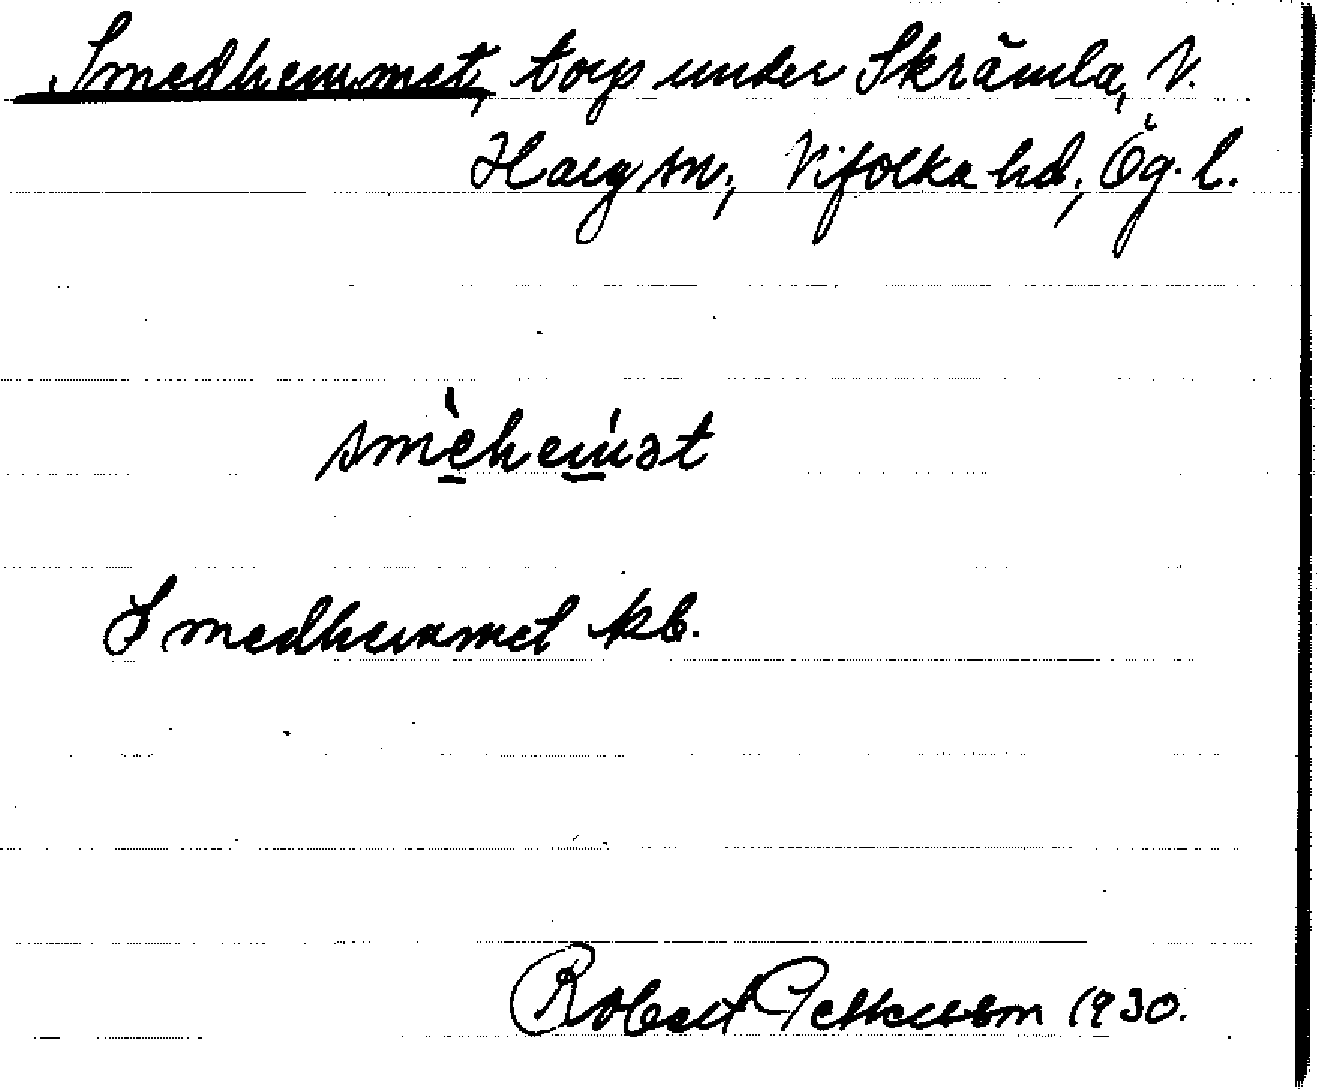 Smedhemmet, torp under Skrämla, V.
Harg sn, Vifolka hd, Ög. l.
smèhemət
Smedhemmet kb.
Robert Pettersson 1930.